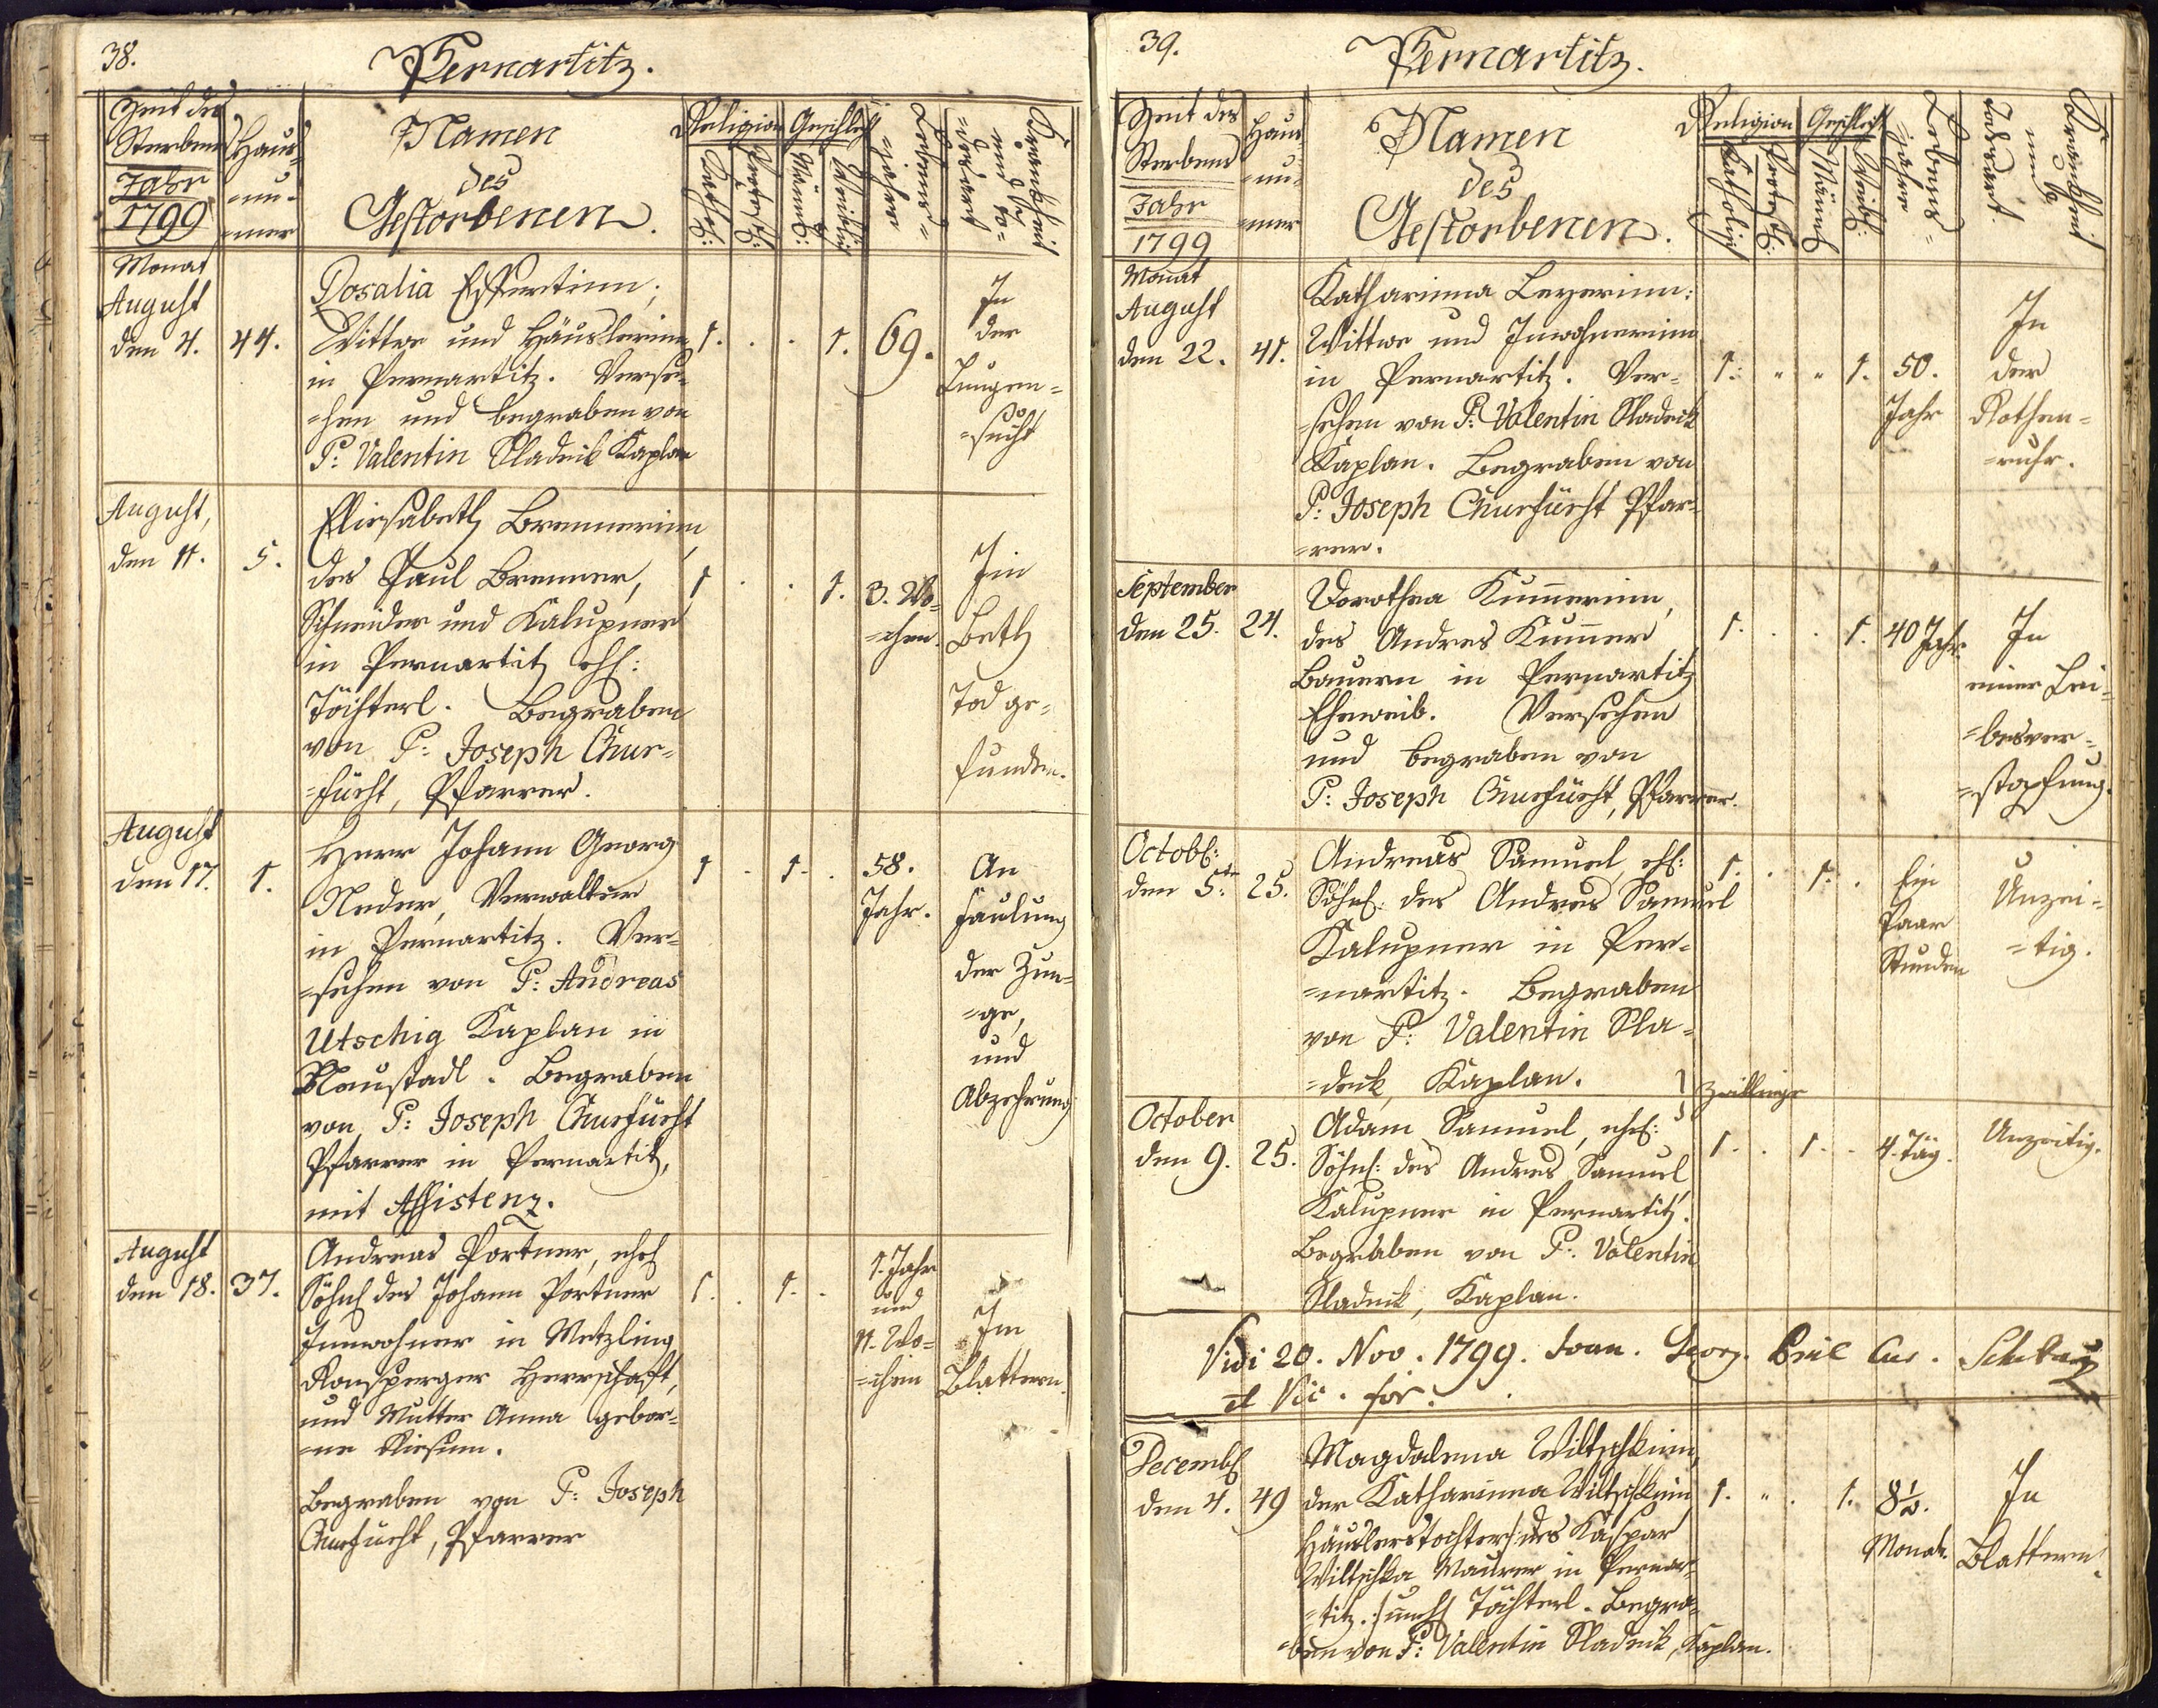 38.
Pernartitz.
Zeit des
Sterbens
Jahr
1799
Haus=
=nu=
=mer
Namen
des
Gestorbenen.
Religion
Kathol:
Protest:
Geschlecht
Männl:
Weiblich
Lebens=
=jahre
Krankheit
und To=
=desart
Monat
August
den 4.
44.
Rosalia
Wittwe und Häuslerinn
in Pernartitz. Verse=
=hen und begraben von
P: Valentin Sladeik Kaplan
1. . . 1.
69.
In
der
Lungen=
=sucht
August,
den 11.
5.
Eliesabeth Brennerinn
des Paul Brenner,
Schneider und Kalupner
in Pernartitz ehl:
Töchterl. Begraben
von P: Joseph Chur=
=fürst, Pfarrer.
1 . . 1.
3. Wo=
=chen.
Im
Beth
Tod ge=
funden.
August
den 17.
1.
Herr Johann Georg
Neder, Verwalter
in Pernartitz. Ver=
=sehen von P: Andreas
Utschig Kaplan in
Neustadl. Begraben
von P: Joseph Churfürst
Pfarrer in Pernartitz,
mit Assistenz.
1 . 1. .
58.
Jahr.
An
Faulung
der Zun=
=ge,
und
Abzehrung
August
den 18.
37.
Andreas Portner, ehel
Söhnl des Johann Portner
Innwohner in Metzling
Ronsperger Herrschaft,
und Mutter Anna gebor=
=ne
Begraben von P: Joseph
Churfürst, Pfarrer
1. . 1. .
1. Jahr
und
11. Wo=
=chen
Im
Blattern.
39.
Pernartitz.
Zeit des
Sterbens
Jahr
1799
Haus=
=nu=
=mer
Namen
des
Gestorbenen.
Religion
Katholisch
Protest:
Geschlecht
Männl
Weibl:
Lebens=
=jahre
Krankheit
und
Todesart.
Monat
August
den 22.
41.
Katharinna Beyerinn:
Wittwe und Innwohnerinn
in Pernartitz. Ver=
=sehen von P: Valentin Sladeik
Kaplan. Begraben von
P: Joseph Churfürst Pfar=
=rer.
1. " " 1.
50.
Jahr
In
der
Rothen=
=ruhr.
September
den 25.
24.
Dorothea Kum̅erinn,
des Andres Kum̅er
Bauern in Pernartitz
Eheweib. Versehen
und begraben von
P: Joseph Churfürst, Pfarrer.
1. . . 1.
40 Jahr.
In
einer Lei=
=besver=
=stopfung.
Octob:
den 5:
25.
Andreas Samuel, ehl:
Söhnl: des Andres Samuel
Kalupner in Per=
=nartitz. Begraben
von P: Valentin Sla=
=deik, Kaplan.
1. . 1. .
Ein
Paar
Stunden
Unzei=
=tig.
Zwillinge
October
den 9.
25.
Adam Samuel, ehel:
Söhnl: des Andres Samuel
Kalupner in Pernartitz.
Begraben von P: Valentin
Sladeik, Kaplan.
1. . 1. .
4. Täg.
Unzeitig.
Vidi 20. Nov. 1799. Joan. Georg.
et Vic. for.
Decemb
den 4.
49
Magdalena Wiltschkinn,
der Katharinna Wiltschkinn
Häuslerstochter /: des Kaspar
Wiltschka Maurer in Pernar=
=titz :/ unehl Töchterl. Begra=
=ben von P: Valentin Sladeik, Kaplan.
1. " . 1.
8½.
Monat.
In
Blattern.